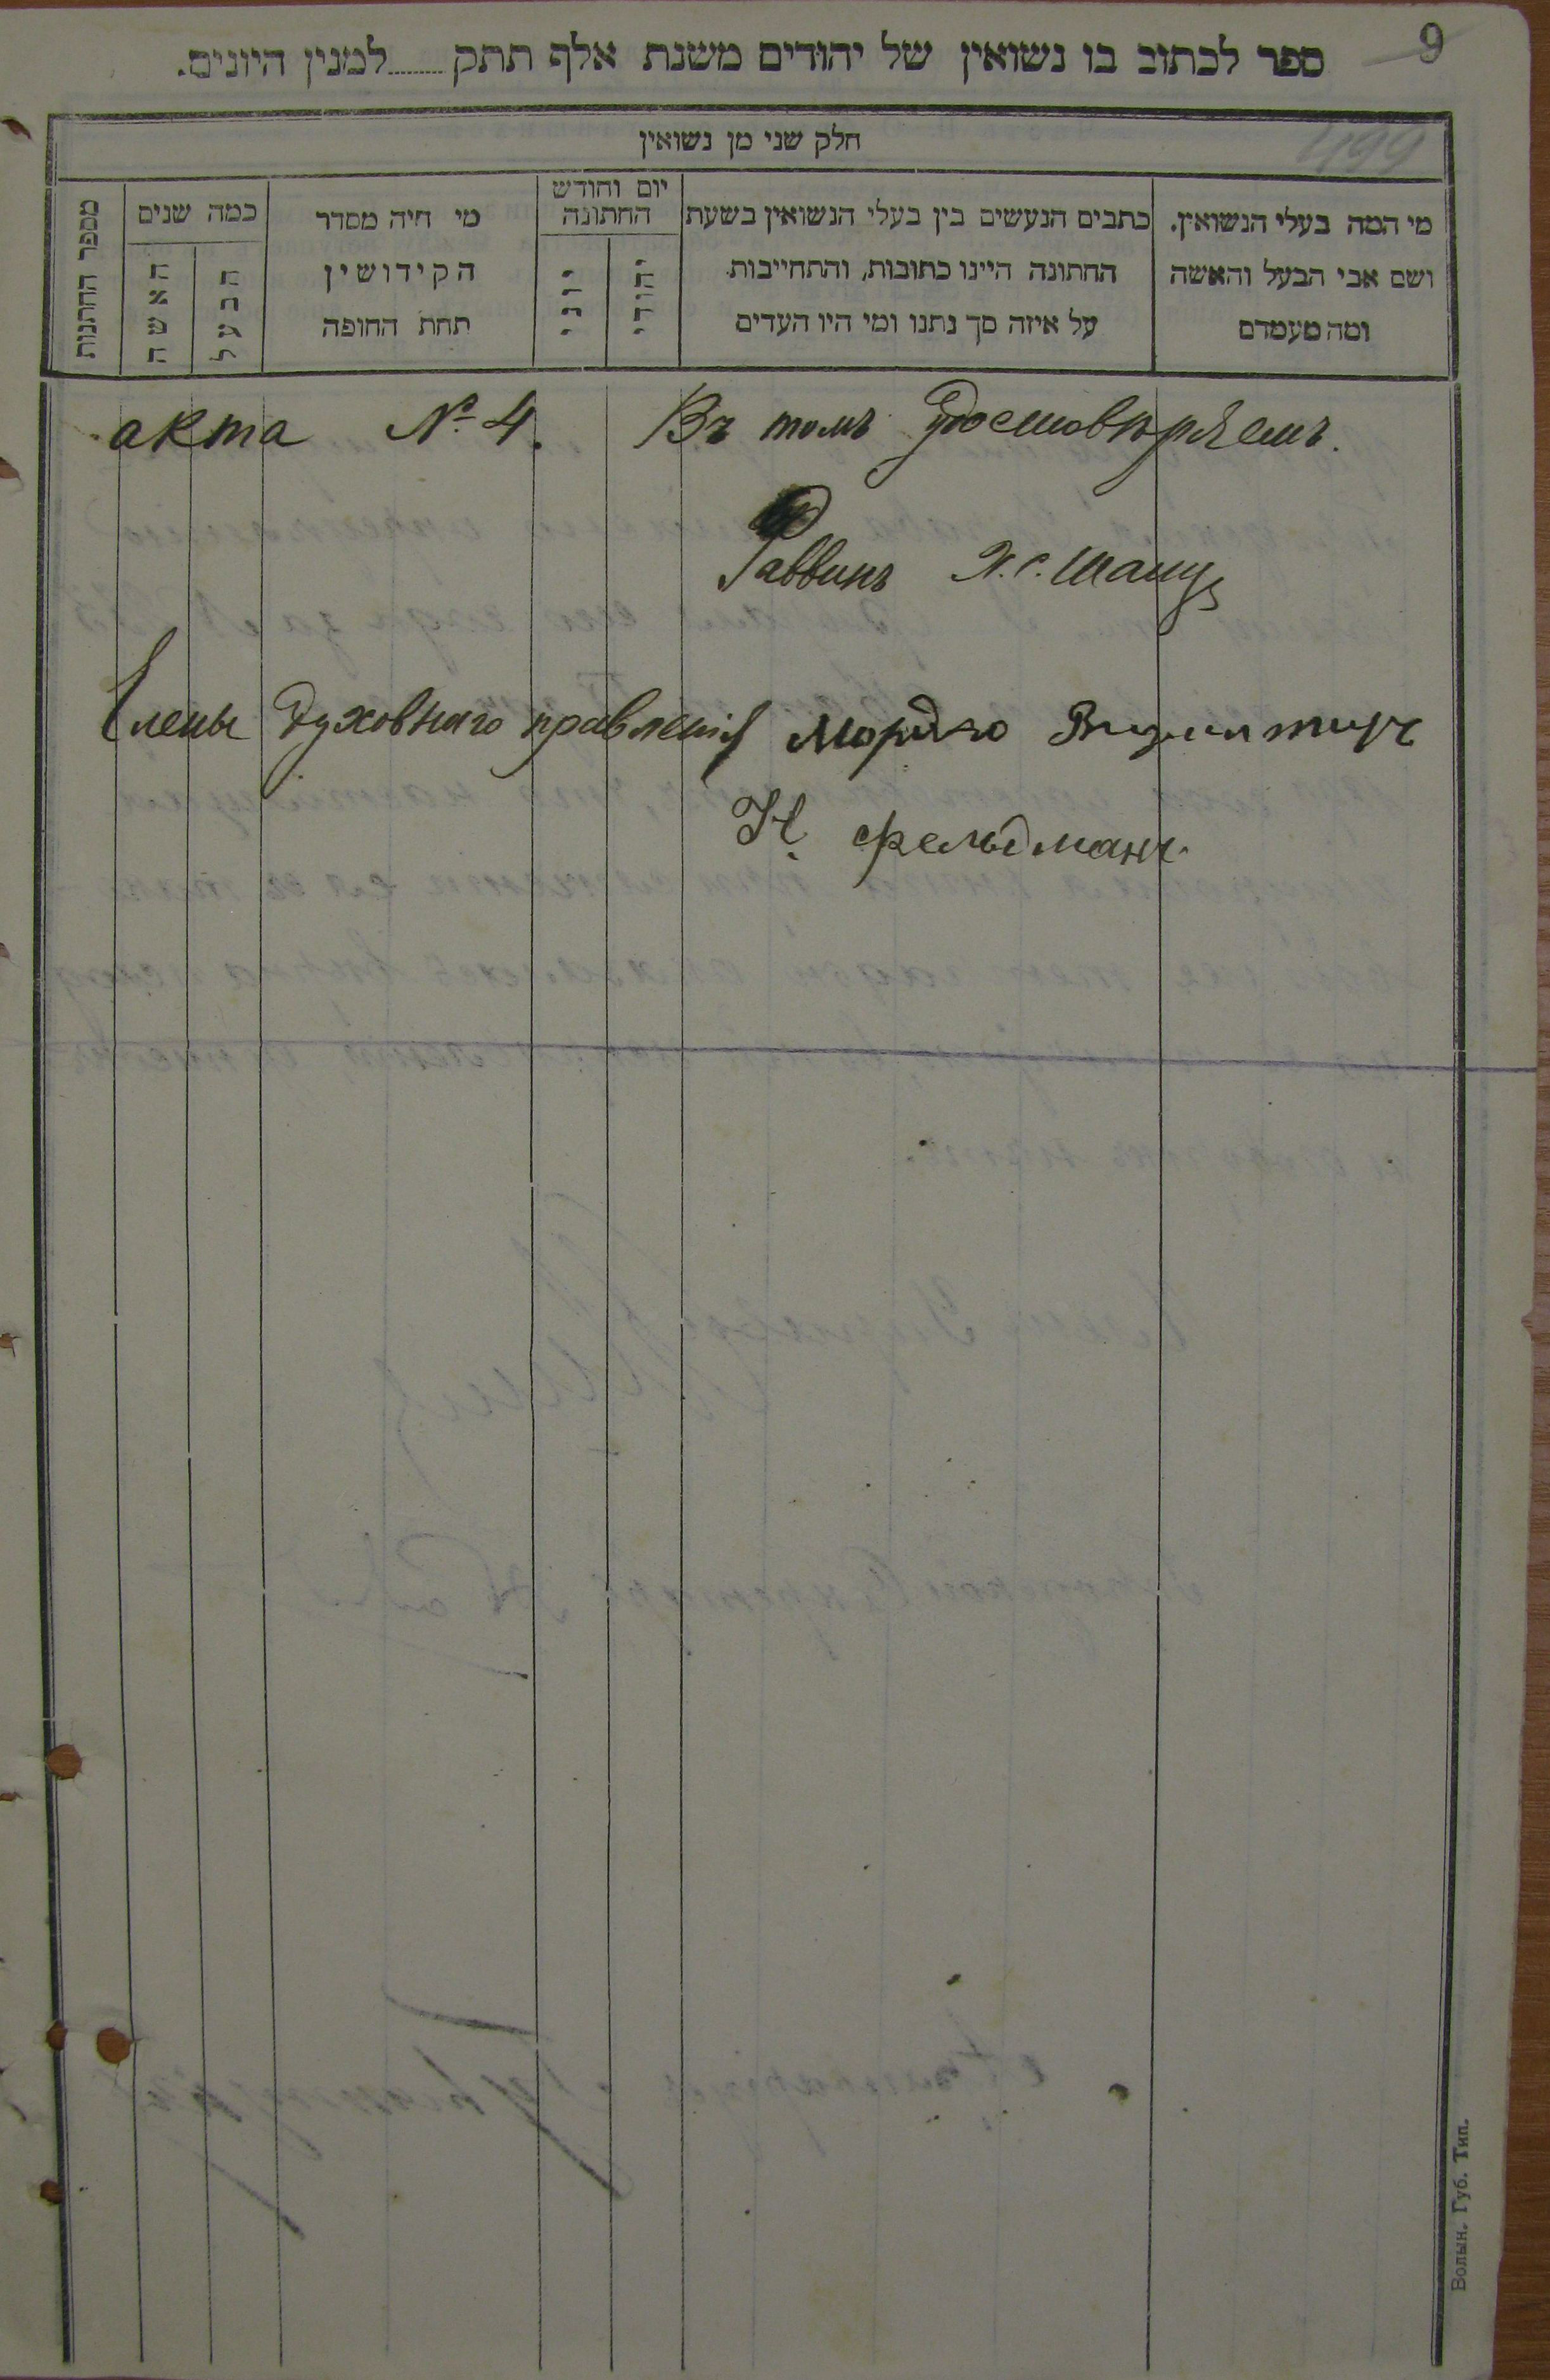 9
ספר לכתוב בו נשואין של יהודים משנת אלף תתק........למנין היונים.
499
חלק שני מן נשואין
מי המה בעלי הנשואין,
ושם אבי הבעל והאשה
ומה מעמדם
כתבים הנעשים בין בעלי הנשואין בשעת
החתונה היינו כתובות, והתחייבות
על איזה סך נתנו ומי היו העדים
יום וחודש
החתונה
יהודי
יוני
מי חיה מסדר
הקידושין
תחת החופה
כמה שנים
הבעל
האשה
מספר החתנות
акта № 4. Въ томъ удостовѣряемъ.
Раввинъ Х. С. Шапу
Члены Духовнаго правленія Мордко
Н. Фельдманъ
Волын. Губ. Тип.